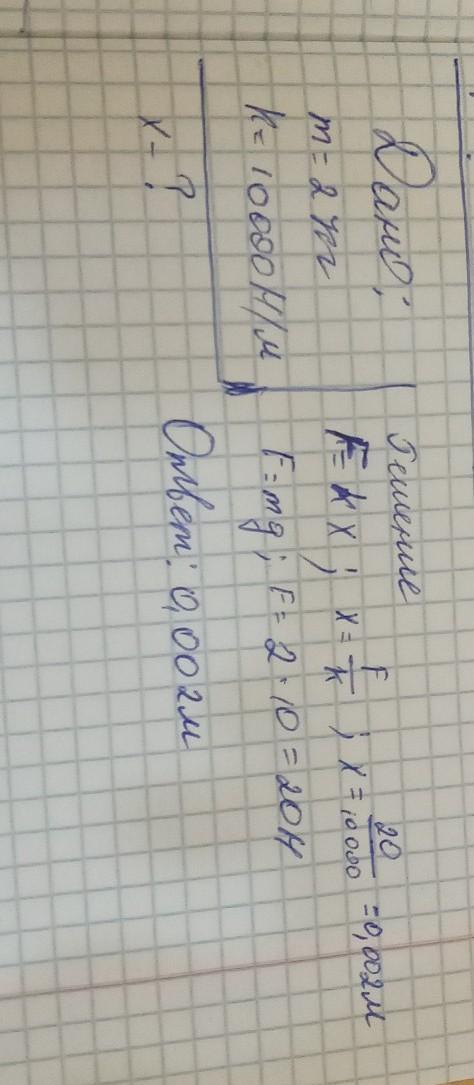 Дано:
m = 2 кг
k = 10000 Н/м
x - ?
Решение
F = kx ; x = F/k ; x = 20/10000 = 0,002м
F = mg ; F = 2 · 10 = 20Н
Ответ: 0,002м